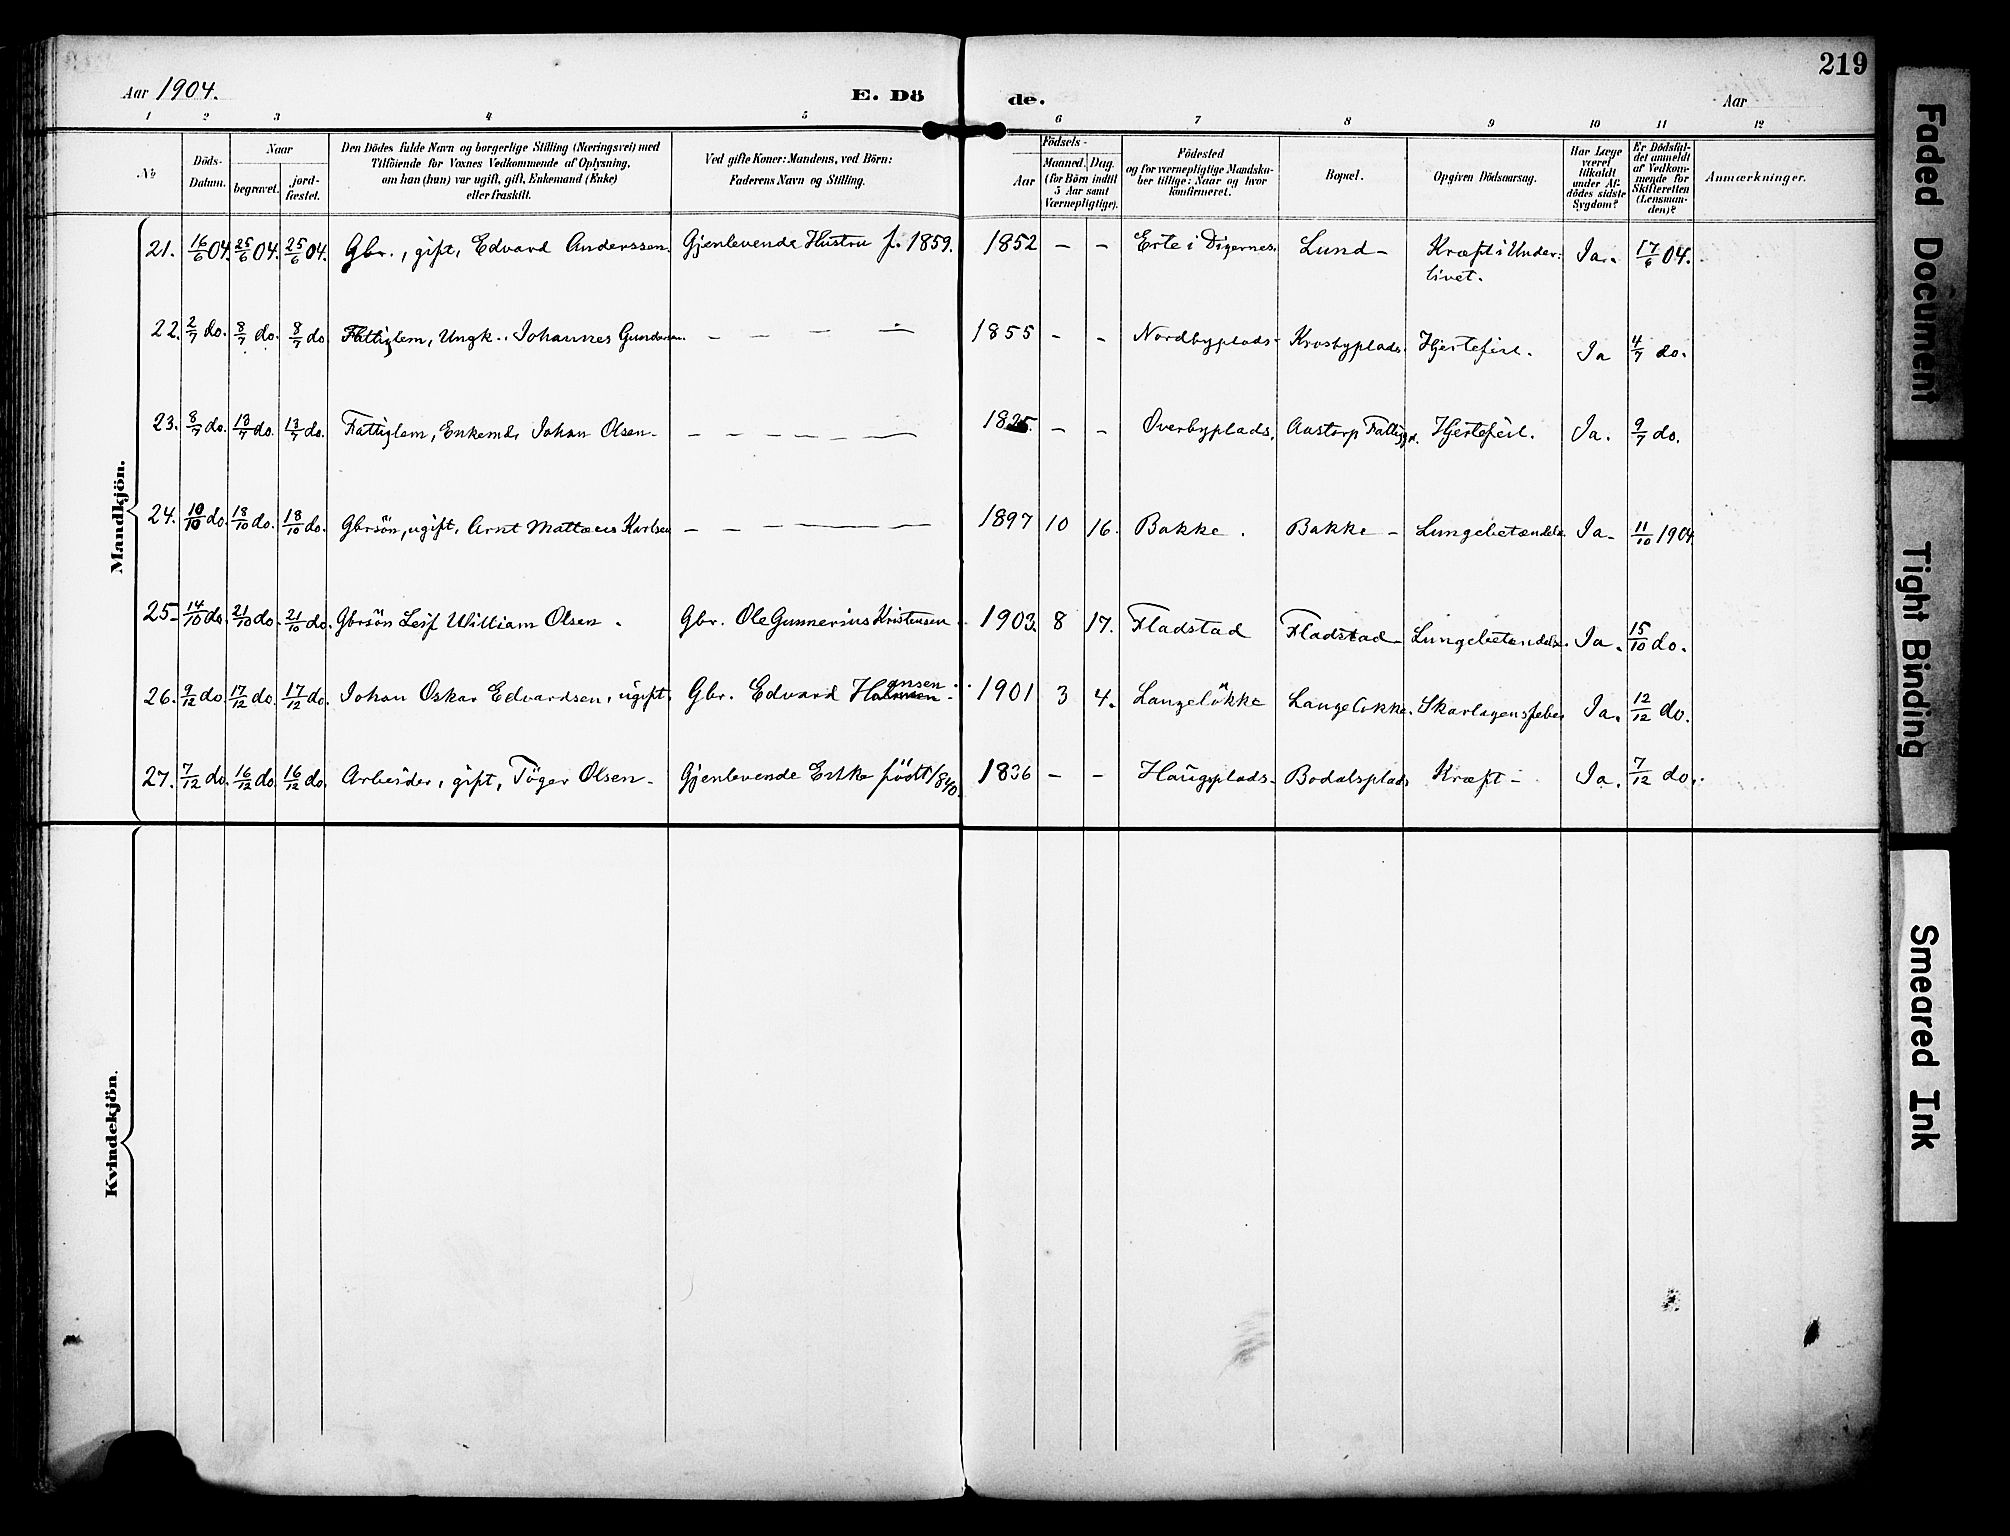 219
Aar 1904.
E. Döde.
Aar
1 2 3 4 5 6 7 8 9 10 11 12
No
Döds-Datum.
Naar
begravet.
jord-fæstet.
Den Dödes fulde Navn og borgerlige Stilling (Næringsvei) med
Tilföiende for Voxnes Vedkommende af Oplysning,
om han (hun) var ugift, gift, Enkemand (Enke)
eller fraskilt.
Ved gifte Koner: Mandens, ved Börn:
Faderens Navn og Stilling.
Födsels-
Aar
Maaned. Dag.
(for Börn indtil
5 Aar samt
Værnepligtige).
Födested
og for værnepligtige Mandsku-
ber tillige: Naar og hvor
konfirmeret.
Bopæl.
Opgiven Dödsaarsag.
Har Læge
været
tilkaldt
under Af-
dödes sidste
Sygdom?
Er Dödsfal-
det anmeldt
af Vedkom-
mende for
Skifteretten
(Lensman-
den)?
Anmærkninger.
Mandkjön.
21. 16/6 04. 25/6 04. 25/6 04. Gbr., gift, Edvard Anderssen. Gjenlevende Hustru f. 1859. 1852 – – Erte i Digernes. Lund – Kræft i Under-
livet. Ja. 17/6 04.
22. 2/7 do. 8/7 do. 8/7 do Fattiglem, Ungk. Johannes Gundersen. – – – – 1855 – – Nordbyplads Krosbyplads. Hjertefeil. Ja 4/7 do.
23. 8/7 do. 13/7 do. 13/7 do. Fattiglem, Enkemd. Johan Olsen – – – – – – – – Overbyplads. Aastorp Fattiggd. Hjertefeil. Ja. 9/7 do.
24. 10/10 do. 18/10 do. 18/10 do. Gbrsön, ugift, Arnt Mattæus Karlsen – – – – – – 1897 10 16. Bakke. Bakke – Lungebetændelse Ja – 11/10 1904
25 14/10 do. 21/10 do. 21/10 do. Gbrsön Leif William Olsen. Gbr. Ole Gunnerius Kristensen 1903. 8 17. Fladstad Fladstad Lungebetændelse. Ja. 15/10 do.
26. 9/12 do. 17/12 do. 17/12 do. Johan Oskar Edvardsen, ugift, Gbr. Edvard Hansen 1901 3 4. Langelökke Langelökke. Skarlagensfeber Ja. 12/12 do.
27. 7/12 do. 16/12 do. 16/12 do. Arbeider, gift, Töger Olsen – Gjenlevende Enke födt 1840. 1836 – – Haugsplads – Bodalsplads Kræft – Ja. 7/12 do.
Kvindekjön.
Faded Document
Tight Binding
Smeared Ink